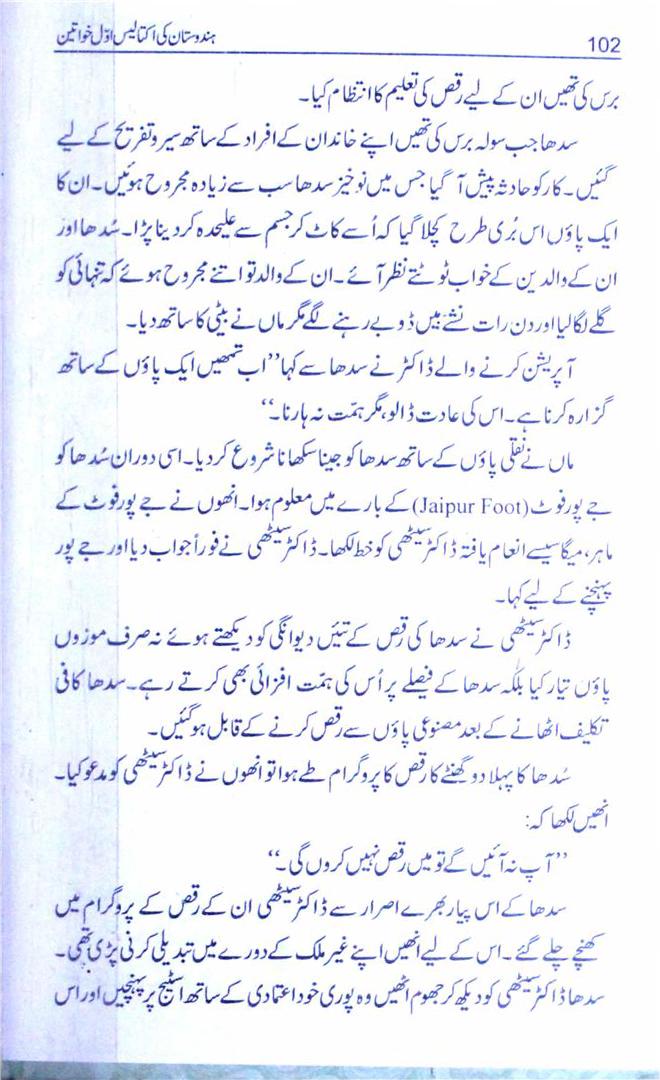 102
ہندوستان کی اکتالیس اوّل خواتین
برس کی تھیں ان کے لیے رقص کی تعلیم کا انتظام کیا۔
سدھا جب سولہ برس کی تھیں اپنے خاندان کے افراد کے ساتھ سیر و تفریح کے لیے
گئیں۔ کار کو حادثہ پیش آ گیا جس میں نوخیز سدھا سب سے زیادہ مجروح ہوئیں۔ ان کا
ایک پاؤں اس بُری طرح کچلا گیا کہ اُسے کاٹ کر جسم سے علیحدہ کر دینا پڑا۔ سُدھا اور
ان کے والدین کے خواب ٹوٹتے نظر آئے۔ ان کے والد تو اتنے مجروح ہوئے کہ تنہائی کو
گلے لگا لیا اور دن رات نشے میں ڈوبے رہنے لگے مگر ماں نے بیٹی کا ساتھ دیا۔
آپریشن کرنے والے ڈاکٹر نے سدھا سے کہا ”اب تمھیں ایک پاؤں کے ساتھ
گزارہ کرنا ہے۔ اس کی عادت ڈالو، مگر ہمّت نہ ہارنا۔“
ماں نے نقلی پاؤں کے ساتھ سدھا کو جینا سکھانا شروع کر دیا۔ اسی دوران سُدھا کو
جے پور فوٹ (Jaipur Foot) کے بارے میں معلوم ہوا۔ انھوں نے جے پور فوٹ کے
ماہر، میگا سیسے انعام یافتہ ڈاکٹر سیٹھی کو خط لکھا۔ ڈاکٹر سیٹھی نے فوراً جواب دیا اور جے پور
پہنچنے کے لیے کہا۔
ڈاکٹر سیٹھی نے سدھا کی رقص کے تئیں دیوانگی کو دیکھتے ہوئے نہ صرف موزوں
پاؤں تیار کیا بلکہ سدھا کے فیصلے پر اُس کی ہمّت افزائی بھی کرتے رہے۔ سدھا کافی
تکلیف اٹھانے کے بعد مصنوعی پاؤں سے رقص کرنے کے قابل ہو گئیں۔
سُدھا کا پہلا دو گھنٹے کا رقص کا پروگرام طے ہوا تو انھوں نے ڈاکٹر سیٹھی کو مدعو کیا۔
انھیں لکھا کہ:
”آپ نہ آئیں گے تو میں رقص نہیں کروں گی۔“
سدھا کے اس پیار بھرے اصرار سے ڈاکٹر سیٹھی ان کے رقص کے پروگرام میں
کھنچے چلے گئے۔ اس کے لیے انھیں اپنے غیر ملک کے دورے میں تبدیلی کرنی پڑی تھی۔
سدھا ڈاکٹر سیٹھی کو دیکھ کر جھوم اٹھیں وہ پوری خود اعتمادی کے ساتھ اسٹیج پر پہنچیں اور اس